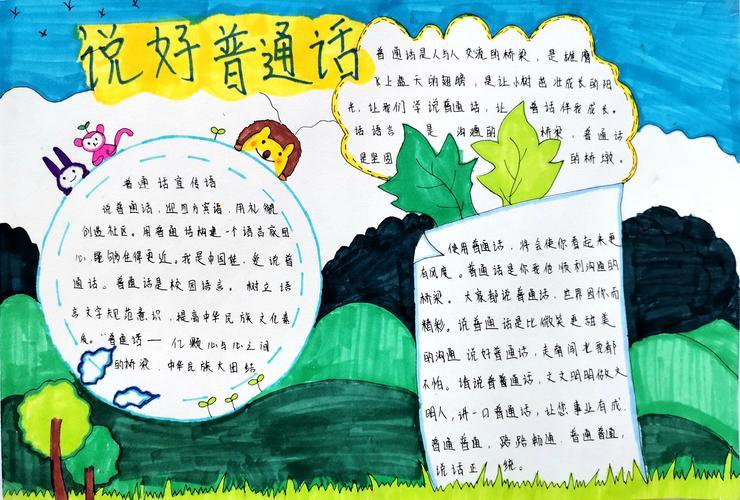 说好普通话
普通话是人与人交流的桥梁，是雄鹰
飞上蓝天的翅膀，是让小树茁壮成长的阳
光，让我们学说普通话，让 普话伴我成长。
话语言 是 沟通的 桥梁，普通话
是坚固 的桥墩。
普通话宣传语
说普通话，迎四方宾语，用礼貌
创造社区。用普通话构建一个语言家园
心，能够住得更近。我是中国娃，爱说普
通话。普通话是校园语言。树立语
言文字规范意识，提高中华民族文化素
质。"普通话一 亿颗心与心之间
的桥梁．中华民族大团结
使用普通话，将会使你看起来更
有风度。普通话是你我他顺利沟通的
桥梁。大家都说普通话，世界因你而
精彩。说普通话是比微笑更甜美
的沟通，说好普通话，走南闯北都
不怕。请说普普通话，文文明明做文
明人，讲一口普通话，让您事业有成．
普通普通，路路畅通．普通普通，
说话正统。